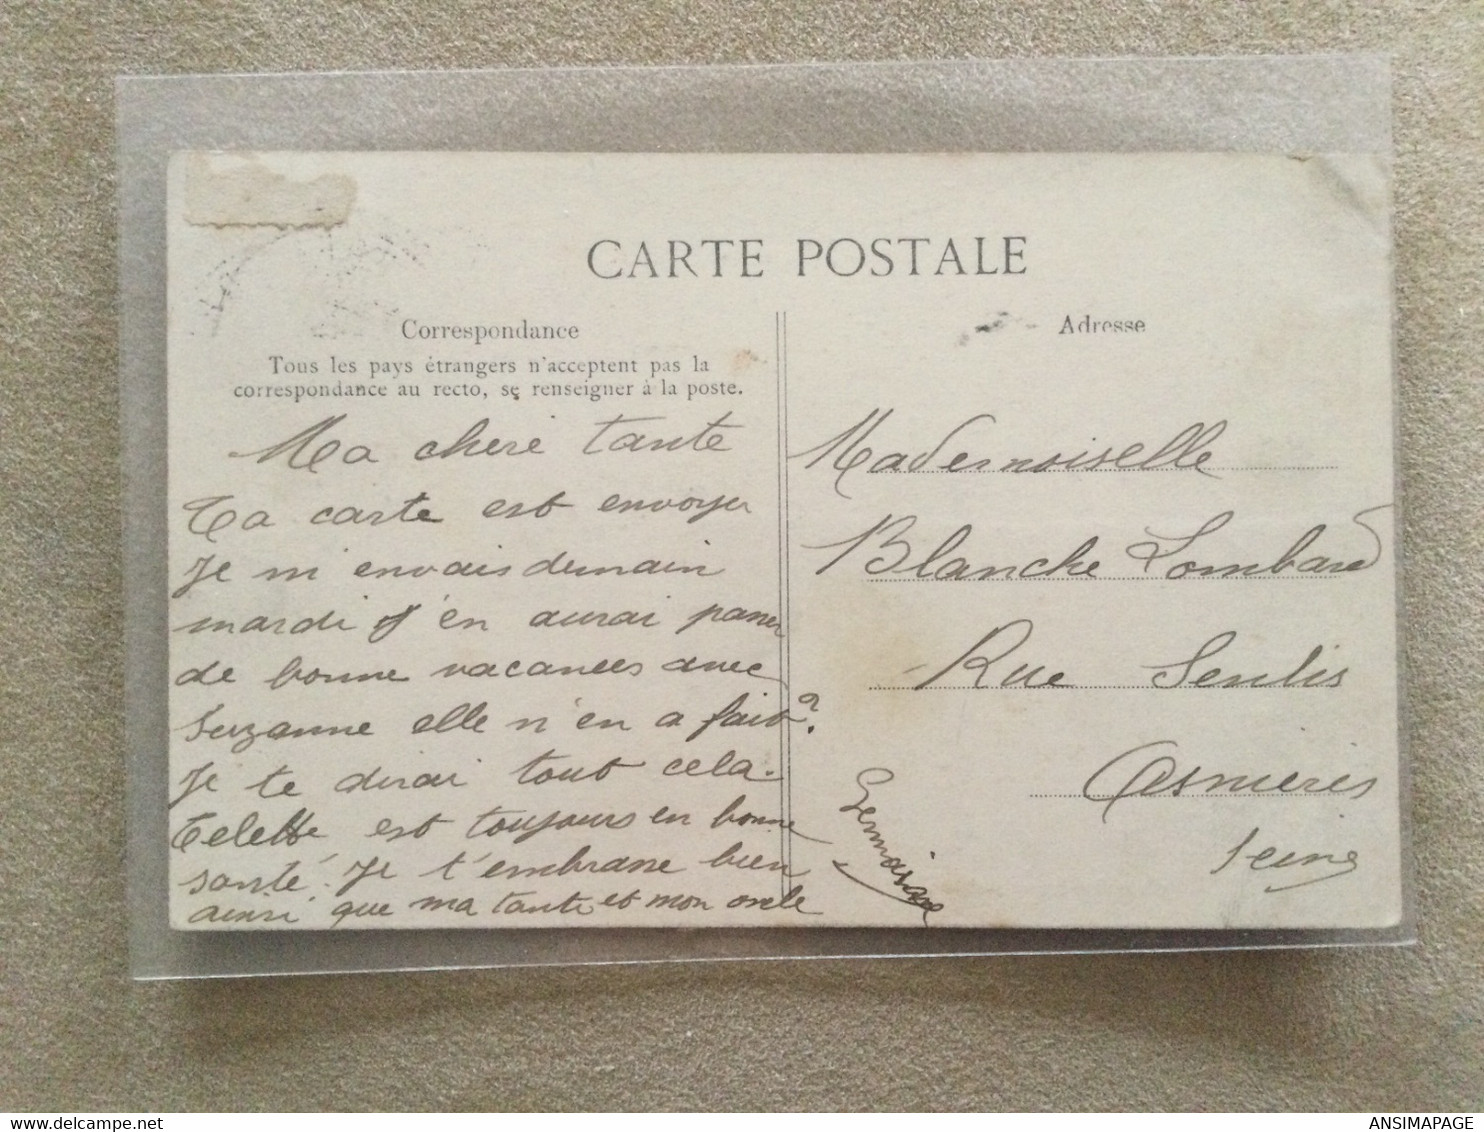 CARTE POSTALE
Correspondance
Tous les pays étrangers n'acceptent pas la
correspondance au recto, se renseigner à la poste.
Ma cheré tante
Ta carte est envoyer
Je m'envais demain
mardi j'en aurai passer
de bonne vacances avec
Suzanne elle n'en a fait?
Je te dirai tout cela.
est toujours en bonne
santé. Je t'embrasse bien
ainsi que ma tante et mon oncle
Germaine
Adresse
Mademoiselle
Blanche Lombard
Rue Senlis
Asnieres
Seine
www.delcampe.net
ANSIMAPAGE